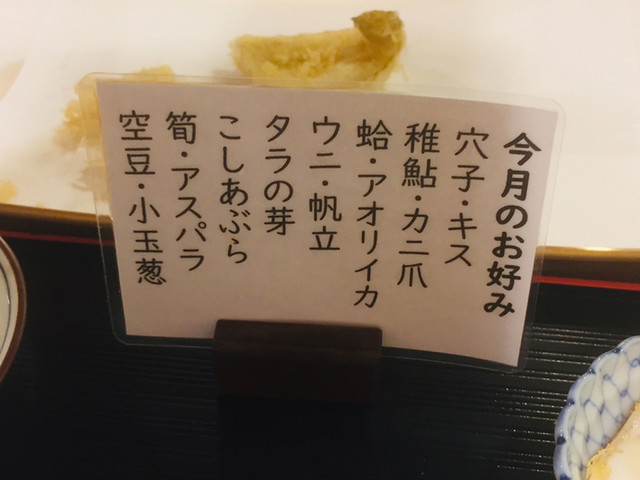 今月のお好み
穴子・キス
稚鮎・カニ爪
蛤・アオリイカ
ウニ・帆立
タラの芽
こしあぶら
筍・アスパラ
空豆・小玉葱